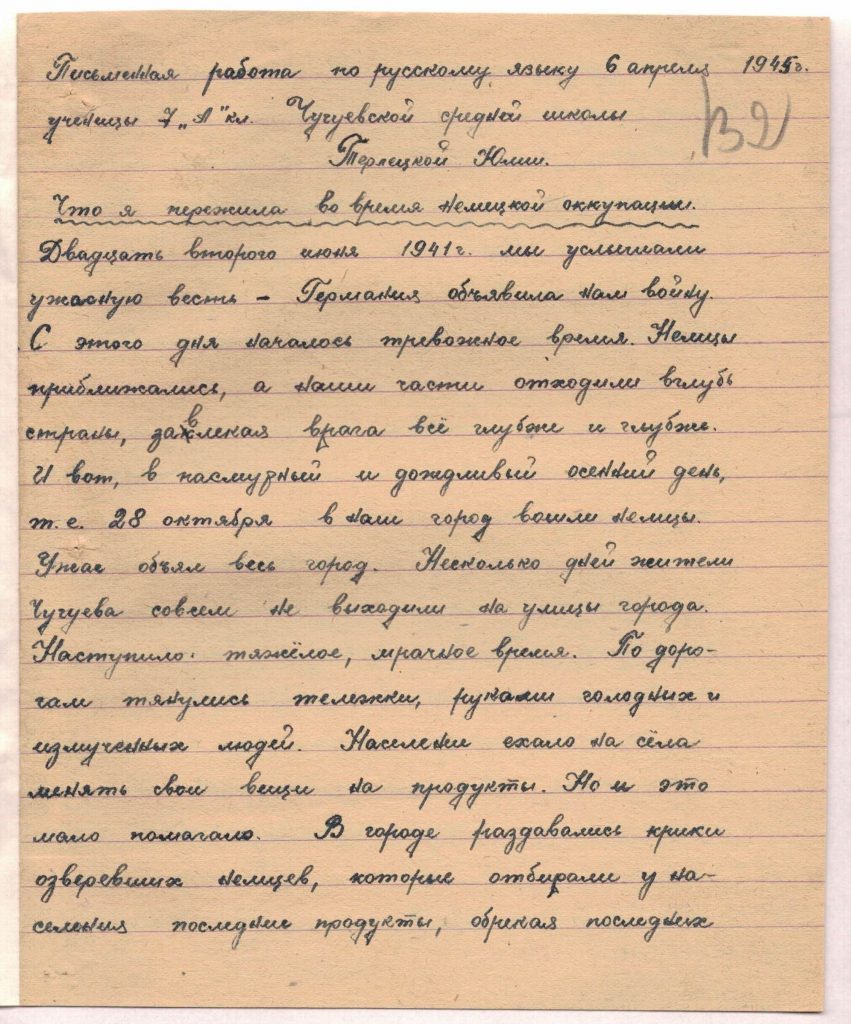 Письменная работа по русскому языку 6 апреля 1945г.
ученицы 7 „А" кл. Чугуевской средней школы
132
Терлецкой Юлии.
Что я пережила во время немецкой оккупации.
Двадцать второго июня 1941г. мы услышали
ужасную весть – Германия объявила нам войну.
С этого дня началось тревожное время. Немцы
приближались, а наши части отходили вглубь
страны, завлекая врага всё глубже и глубже.
И вот, в пасмурный и дождливый осенний день,
т. е. 28 октября в наш город вошли немцы.
Ужас объял весь город. Несколько дней жители
Чугуева совсем не выходили на улицы города.
Наступило тяжёлое, мрачное время. По доро-
гам тянулись тележки, руками голодных и
измученных людей. Население ехало на сёла
менять свои вещи на продукты. Но и это
мало помагало. В городе раздавались крики
озверевших немцев, которые отбирали у на-
селения последние продукты, обрекая последних